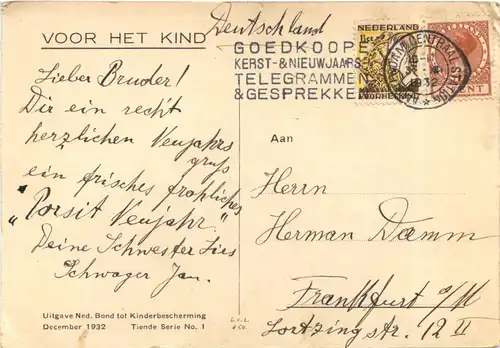 Deutschland
VOOR HET KIND
GOEDKOOPE
KERST- & NIEUWJAARS-
TELEGRAMMEN
& GESPREKKEN
NEDERLAND
VOOR HET KIND
CENT
CENTRAAL STATION
1932
Lieber Bruder!
Dir ein recht
herzlichen Neujahrs
gruß
ein frisches fröhliches
„Porsit Neujahr."
Deine Schwester Lies
Schwager Jan.
Aan
Herrn
Herman Damm
Frankfurt a/M
Lortzing str. 12 II
Uitgave Ned. Bond tot Kinderbescherming
December 1932 Tiende Serie No. 1
L. v. L.
& Co.